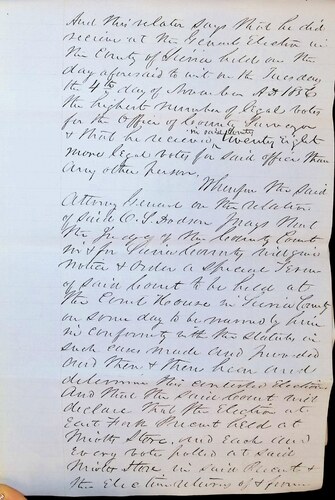 And this relator says that he did
receive at the General Election in
the County of held on the
day aforesaid to wit on the Tuesday
the 4th day of November AD 1856
the highest number of legal votes
for the Office of County Surveyor
& that he received in said County twenty eight
more legal votes for said office than
any other person.
Wherefore the said
Attorney General on the relation
of said C. S. Hodson prays that
the Judge of the County Court
in & for County will give
notice & order a Special Term
of said Court to be held at
the Court House in County
on some day to be named by him
in conformity with the statute in
such case made and provided
and then & there hear and
determine this contested Election
And that the said Court will
declare that the Election at
East Fork Precinct held at
Store, and each and
every vote polled at said
Store in said Precinct &
the Election returns of &